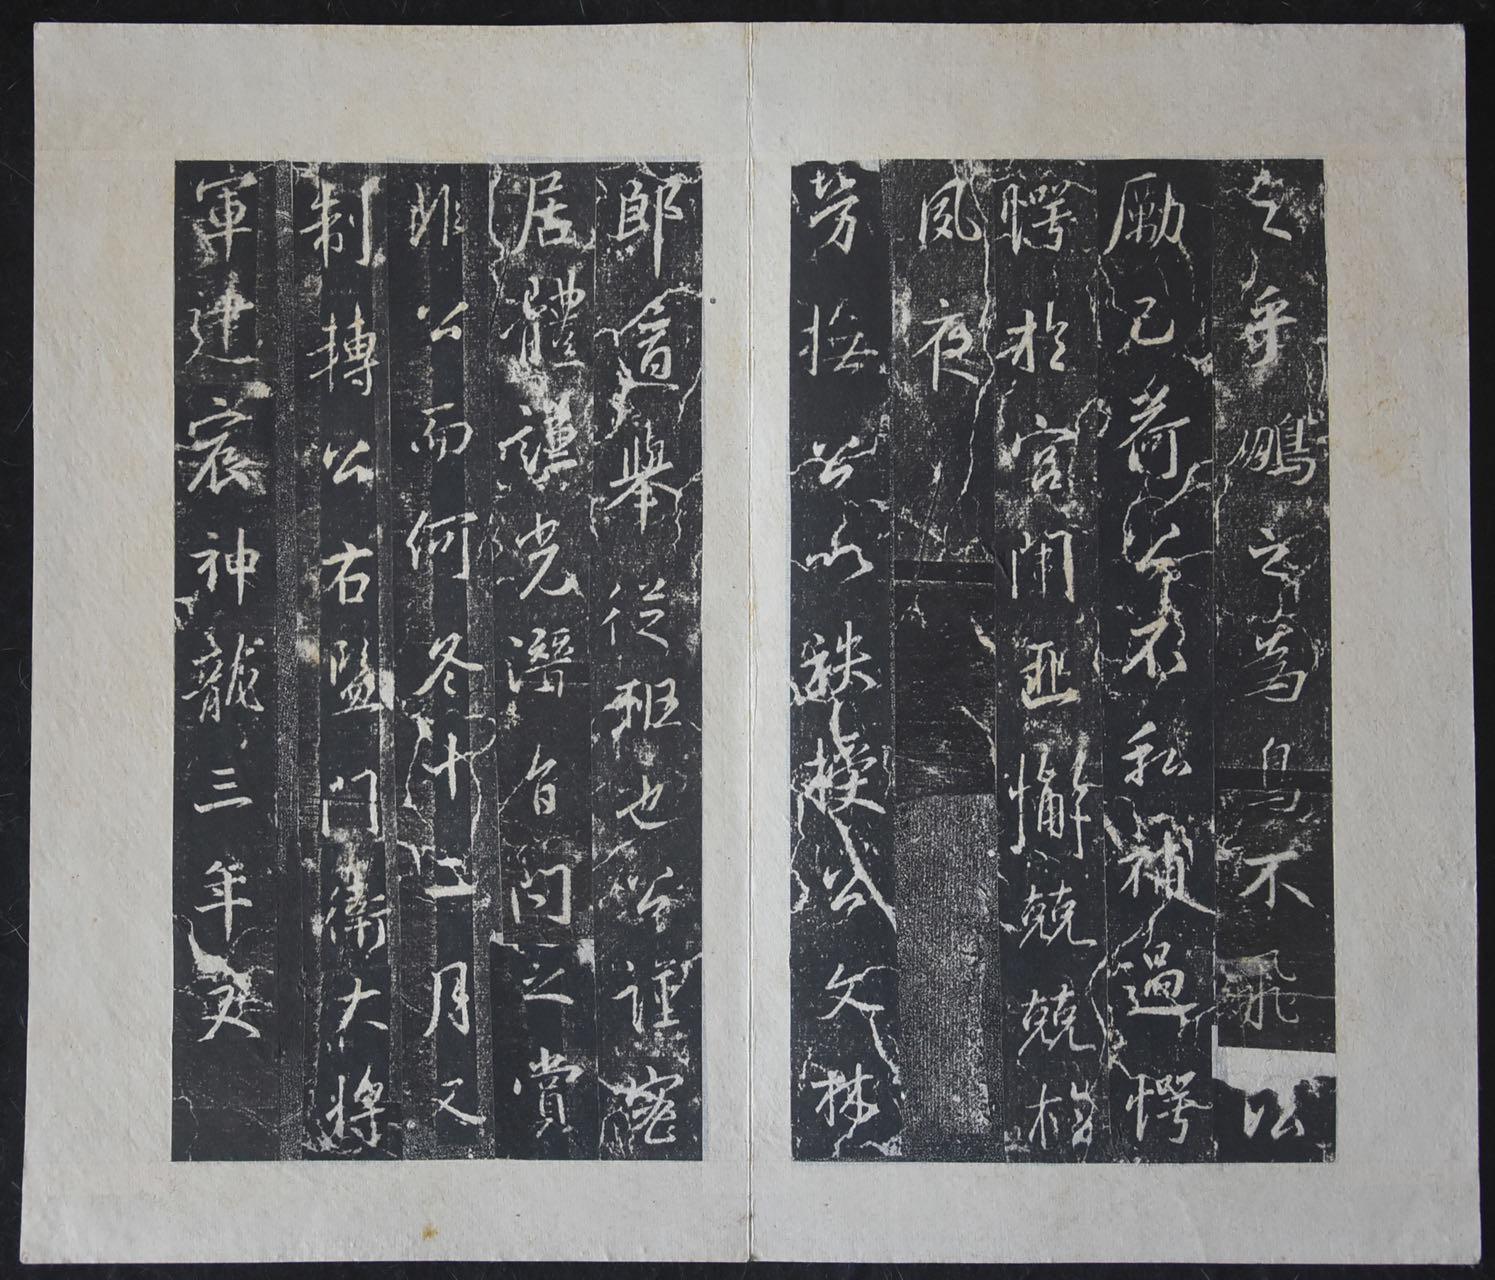 之乎鵬之為鳥不飛公
勵己荷公不私補過愕
愕於宮闈匪懈兢兢
夙夜
勞撫公以秩授公文林
郎道舉從班也公謹密
居體謙光潛自問之賞
非公而何冬十二月又
制轉公右監門衛大將
軍建哀神龍三年夏